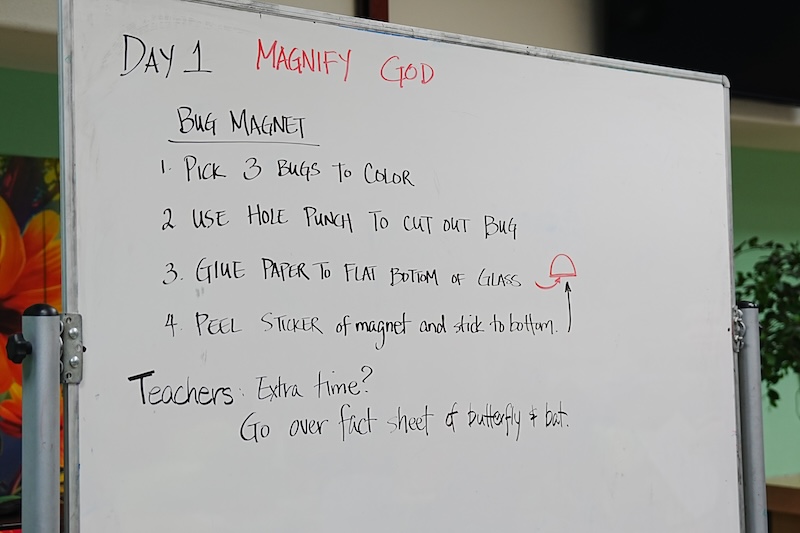 DAY 1 MAGNIFY GOD
BUG MAGNET
1. PICK 3 BUGS TO COLOR
2 USE HOLE PUNCH TO CUT OUT BUG
3. GLUE PAPER TO FLAT BOTTOM OF GLASS
4. PEEL STICKER of magnet and stick to bottom.
Teachers: Extra time?
Go over fact sheet of butterfly & bat.